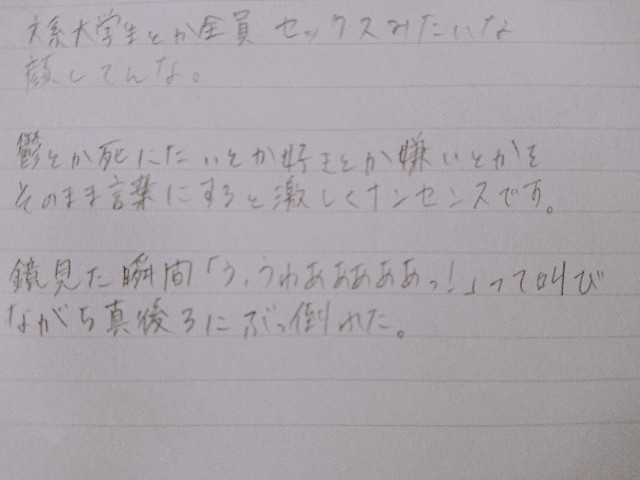 文系大学生とか全員 セックスみたいな
顔してんな。
鬱とか死にたいとか好きとか嫌いとかを
そのまま言葉にすると激しくナンセンスです。
鏡見た瞬間「う、うわああああっ!」って叫び
ながら真後ろにぶっ倒れた。